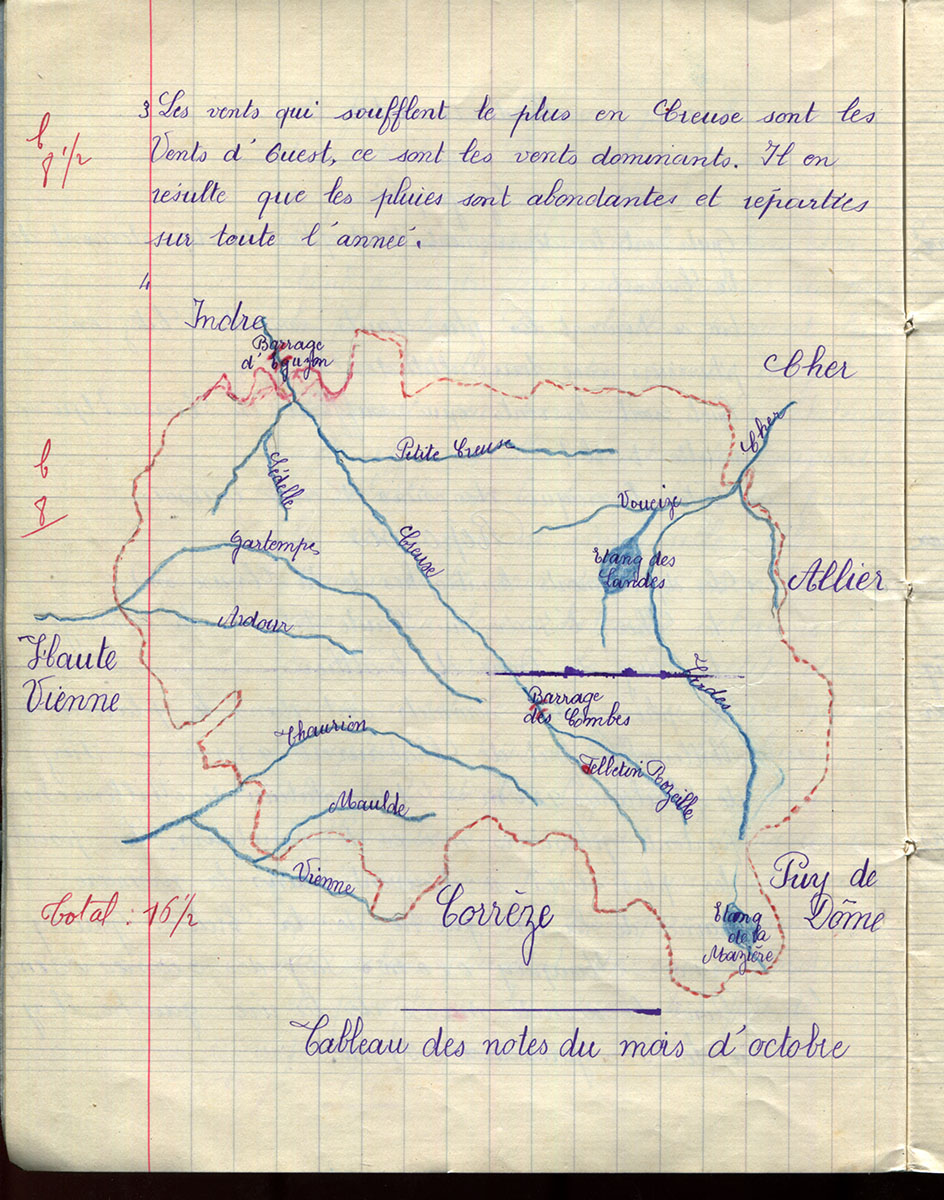 3 Les vents qui soufflent le plus en Creuse sont les
Vents d'Ouest, ce sont les vents dominants. Il en
résulte que les pluies sont abondantes et réparties
sur toute l'année.
8 1/2
4
Indre
Barrage
d'Eguzon
Cher
Cher
Petite Creuse
Sédelle
Voueize
Creuse
8
Gartempe
Etang des
Landes
Allier
Ardour
Haute
Vienne
Tardes
Barrage
des Combes
Thaurion
Felletin
Rozeille
Maulde
Vienne
Puy de
Dôme
Total : 16 1/2
Corrèze
Etang
de la
Mazière
Tableau des notes du mois d'octobre